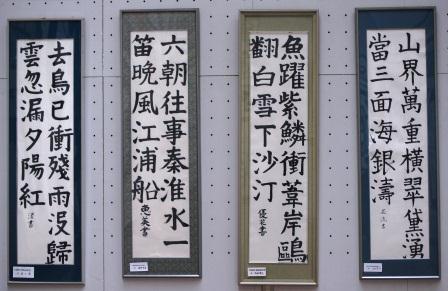 山界萬重橫翠黛湧
當三面海銀濤
魚躍紫鱗衝葦岸鷗
翻白雪下沙汀
六朝往事秦淮水一
笛晚風江浦船
恵英書
去鳥已衝殘雨沒歸
雲忽漏夕陽紅